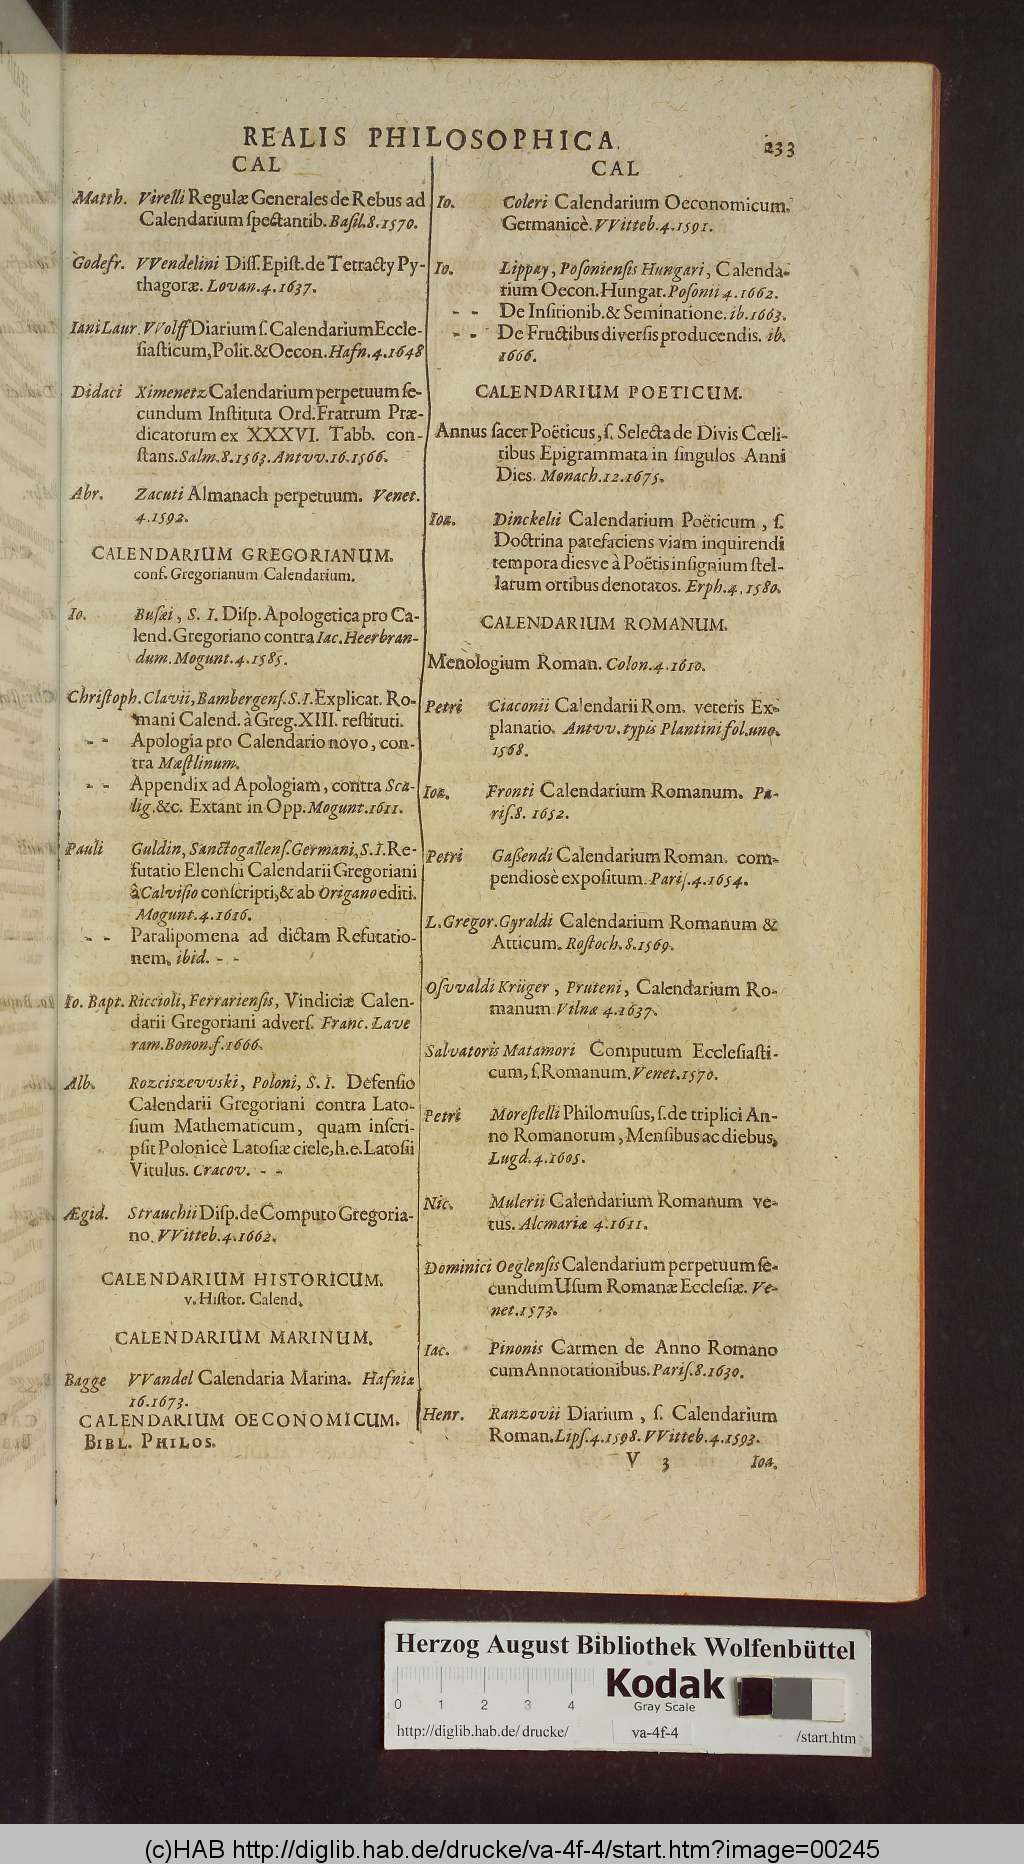 REALIS PHILOSOPHICA.
233
CAL
Matth. Virelli Regulæ Generales de Rebus ad
Calendarium ſpectantib. Baſil. 8. 1570.
Godefr. VVendelini Diſſ. Epiſt. de Tetracty Py-
thagoræ. Lovan. 4. 1637.
Iani Laur. VVolff Diarium ſ. Calendarium Eccle-
ſiaſticum, Polit. & Oecon. Hafn. 4. 1648
Didaci Ximenetz Calendarium perpetuum ſe-
cundum Inſtituta Ord. Fratrum Præ-
dicatorum ex XXXVI. Tabb. con-
ſtans. Salm. 8. 1563. Antvv. 16. 1566.
Abr. Zacuti Almanach perpetuum. Venet.
4. 1592.
CALENDARIUM GREGORIANUM.
conf. Gregorianum Calendarium.
Io. Buſæi, S. I. Diſp. Apologetica pro Ca-
lend. Gregoriano contra Iac. Heerbran-
dum. Mogunt. 4. 1585.
Chriſtoph. Clavii, Bambergenſ. S. I. Explicat. Ro-
mani Calend. à Greg. XIII. reſtituti.
- - Apologia pro Calendario novo, con-
tra Mæſtlinum.
- - Appendix ad Apologiam, contra Sca-
lig. &c. Extant in Opp. Mogunt. 1611.
Pauli Guldin, Sanctogallenſ. Germani, S. I. Re-
futatio Elenchi Calendarii Gregoriani
à Calviſio conſcripti, & ab Origano editi.
Mogunt. 4. 1616.
- - Paralipomena ad dictam Refutatio-
nem. ibid. - -
Io. Bapt. Riccioli, Ferrarienſis, Vindiciæ Calen-
darii Gregoriani adverſ. Franc. Lave
ram. Bonon. f. 1666.
Alb. Rozciszevvski, Poloni, S. I. Defenſio
Calendarii Gregoriani contra Lato-
ſium Mathematicum, quam inſcri-
pſit Polonicè Latoſiæ ciele, h. e. Latoſii
Vitulus. Cracov. - -
Ægid. Strauchii Diſp. de Computo Gregoria-
no. VVitteb. 4. 1662.
CALENDARIUM HISTORICUM.
v. Hiſtor. Calend.
CALENDARIUM MARINUM.
Bagge VVandel Calendaria Marina. Hafniæ
16. 1673.
CALENDARIUM OECONOMICUM.
BIBL. PHILOS.
CAL
Io. Coleri Calendarium Oeconomicum.
Germanicè. VVitteb. 4. 1591.
Io. Lippay, Poſonienſis Hungari, Calenda-
rium Oecon. Hungar. Poſonii 4. 1662.
- - De Inſitionib. & Seminatione. ib. 1663.
- - De Fructibus diverſis producendis. ib.
1666.
CALENDARIUM POETICUM.
Annus ſacer Poëticus, ſ. Selecta de Divis Cœli-
tibus Epigrammata in ſingulos Anni
Dies. Monach. 12. 1675.
Ioa. Dinckelii Calendarium Poëticum, ſ.
Doctrina patefaciens viam inquirendi
tempora diesve à Poëtis inſignium ſtel-
larum ortibus denotatos. Erph. 4. 1580.
CALENDARIUM ROMANUM.
Menologium Roman. Colon. 4. 1610.
Petri Ciaconii Calendarii Rom. veteris Ex-
planatio. Antvv. typis Plantini fol. uno.
1568.
Ioa. Fronti Calendarium Romanum. Pa-
riſ. 8. 1652.
Petri Gaſſendi Calendarium Roman. com-
pendiosè expoſitum. Pariſ. 4. 1654.
L. Gregor. Gyraldi Calendarium Romanum &
Atticum. Roſtoch. 8. 1569.
Oſvvaldi Krüger, Pruteni, Calendarium Ro-
manum Vilnæ 4. 1637.
Salvatoris Matamori Computum Eccleſiaſti-
cum, ſ. Romanum. Venet. 1570.
Petri Moreſtelli Philomuſus, ſ. de triplici An-
no Romanorum, Menſibus ac diebus.
Lugd. 4. 1605.
Nic. Mulerii Calendarium Romanum ve-
tus. Alcmariæ 4. 1611.
Dominici Oeglenſis Calendarium perpetuum ſe-
cundum Uſum Romanæ Eccleſiæ. Ve-
net. 1573.
Iac. Pinonis Carmen de Anno Romano
cum Annotationibus. Pariſ. 8. 1630.
Henr. Ranzovii Diarium, ſ. Calendarium
Roman. Lipſ. 4. 1598. VVitteb. 4. 1593.
V 3 Ioa.
Herzog August Bibliothek Wolfenbüttel
0 1 2 3 4
Kodak
Gray Scale
http://diglib.hab.de/drucke/ va-4f-4 /start.htm
(c)HAB http://diglib.hab.de/drucke/va-4f-4/start.htm?image=00245